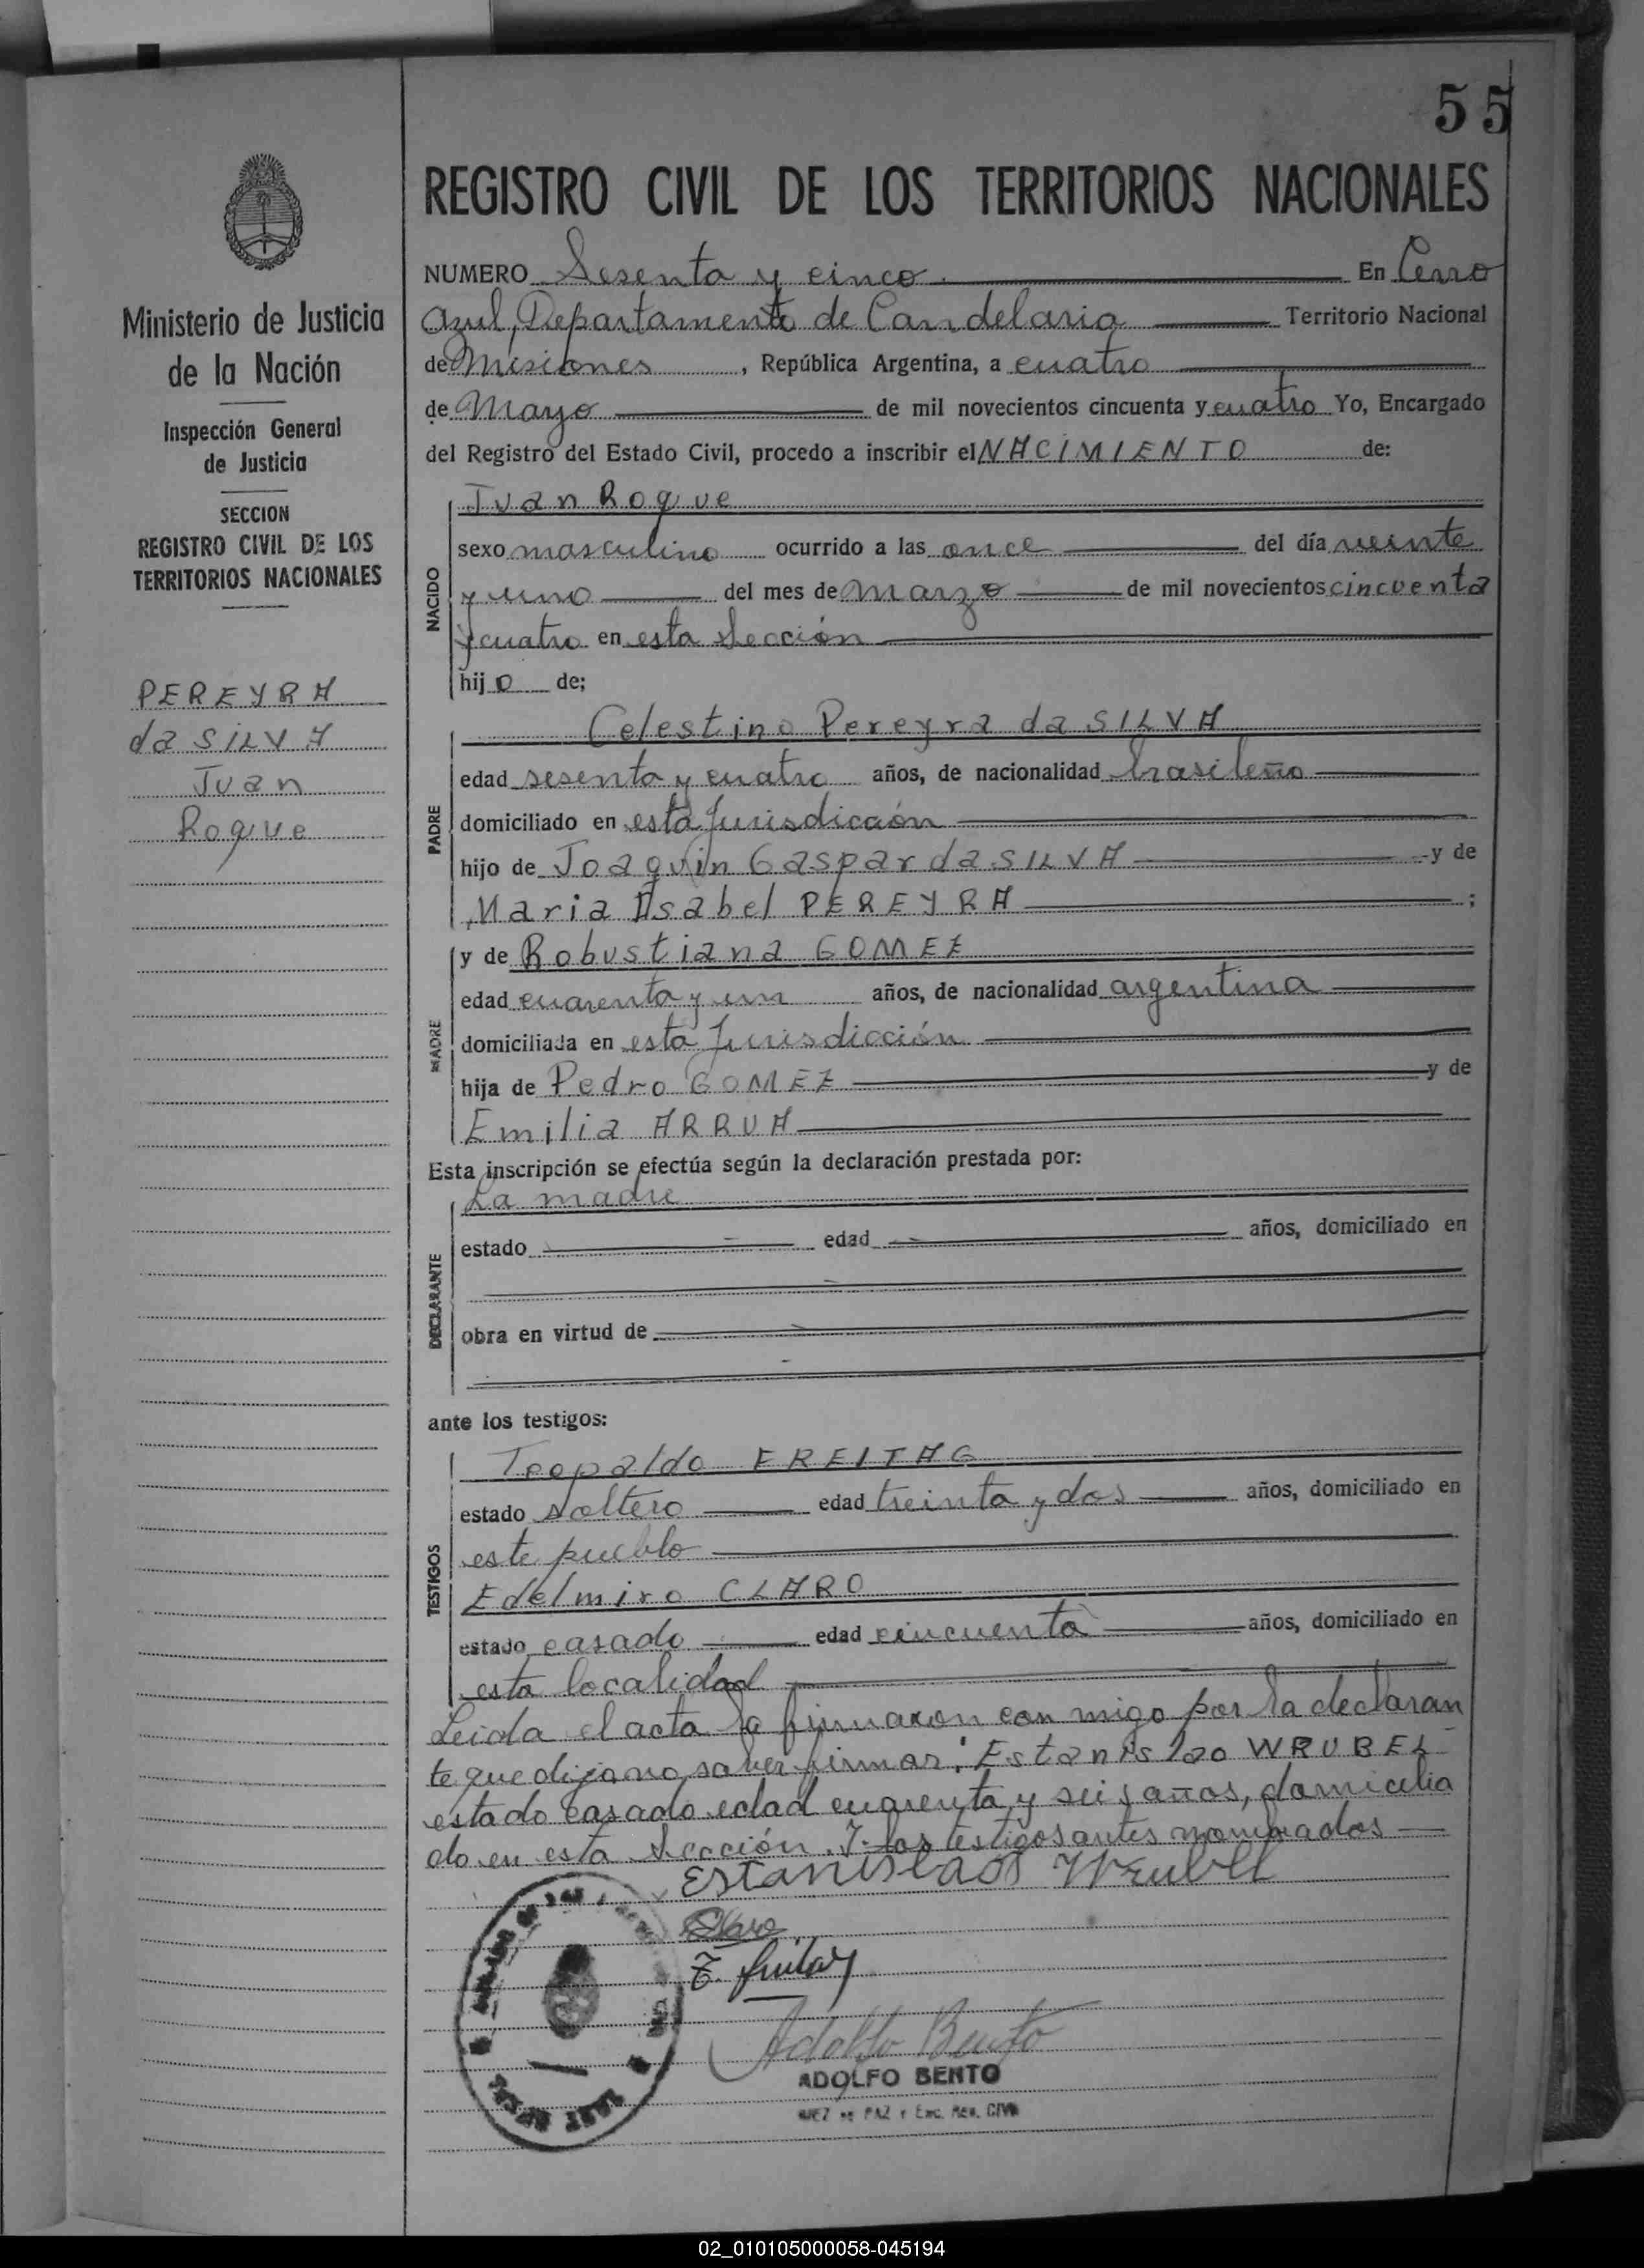 55
Ministerio de Justicia
de la Nación
Inspección General
de Justicia
SECCION
REGISTRO CIVIL DE LOS
TERRITORIOS NACIONALES
PEREYRA
da SILVA
Juan
Roque
REGISTRO CIVIL DE LOS TERRITORIOS NACIONALES
NUMERO Sesenta y cinco En Cerro
Azul, Departamento de Candelaria Territorio Nacional
de Misiones, República Argentina, a cuatro
de Mayo de mil novecientos cincuenta y cuatro Yo, Encargado
del Registro del Estado Civil, procedo a inscribir el NACIMIENTO de:
NACIDO
Juan Roque
sexo masculino ocurrido a las once del día veinte
y uno del mes de Marzo de mil novecientos cincuenta
y cuatro en esta Sección
hijo de;
PADRE
Celestino Pereyra da SILVA
edad sesenta y cuatro años, de nacionalidad brasileño
domiciliado en esta Jurisdicción
hijo de Joaquin Gaspar da SILVA y de
Maria Isabel PEREYRA;
MADRE
y de Robustiana GOMEZ
edad cuarenta y un años, de nacionalidad argentina
domiciliada en esta Jurisdicción
hija de Pedro GOMEZ y de
Emilia ARRUA
Esta inscripción se efectúa según la declaración prestada por:
DECLARANTE
La madre
estado edad años, domiciliado en
obra en virtud de
ante los testigos:
TESTIGOS
Teopaldo FREITAG
estado soltero edad treinta y dos años, domiciliado en
este pueblo
Edelmiro CLARO
estado casado edad cincuenta años, domiciliado en
esta localidad
Leida el acta la firmaron con migo por la declaran
te que dijo no saber firmar: Estanislao WRUBEL
estado casado edad cuarenta y seis años, domicilia
do en esta Sección. Y los testigos antes nombrados
Estanislaos Wrubel
Claro
T. Freitag
Adolfo Bento
ADOLFO BENTO
JUEZ DE PAZ Y ENC. REG. CIVIL
02_010105000058-045194